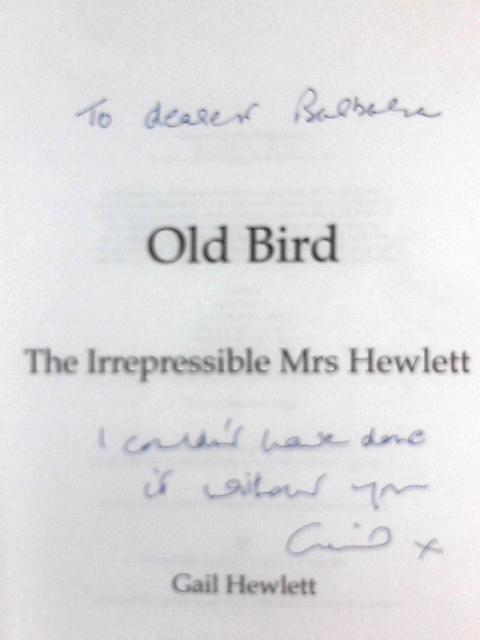 To dearest Barbara
Old Bird
The Irrepressible Mrs Hewlett
I couldn't have done
it without you
Gail x
Gail Hewlett